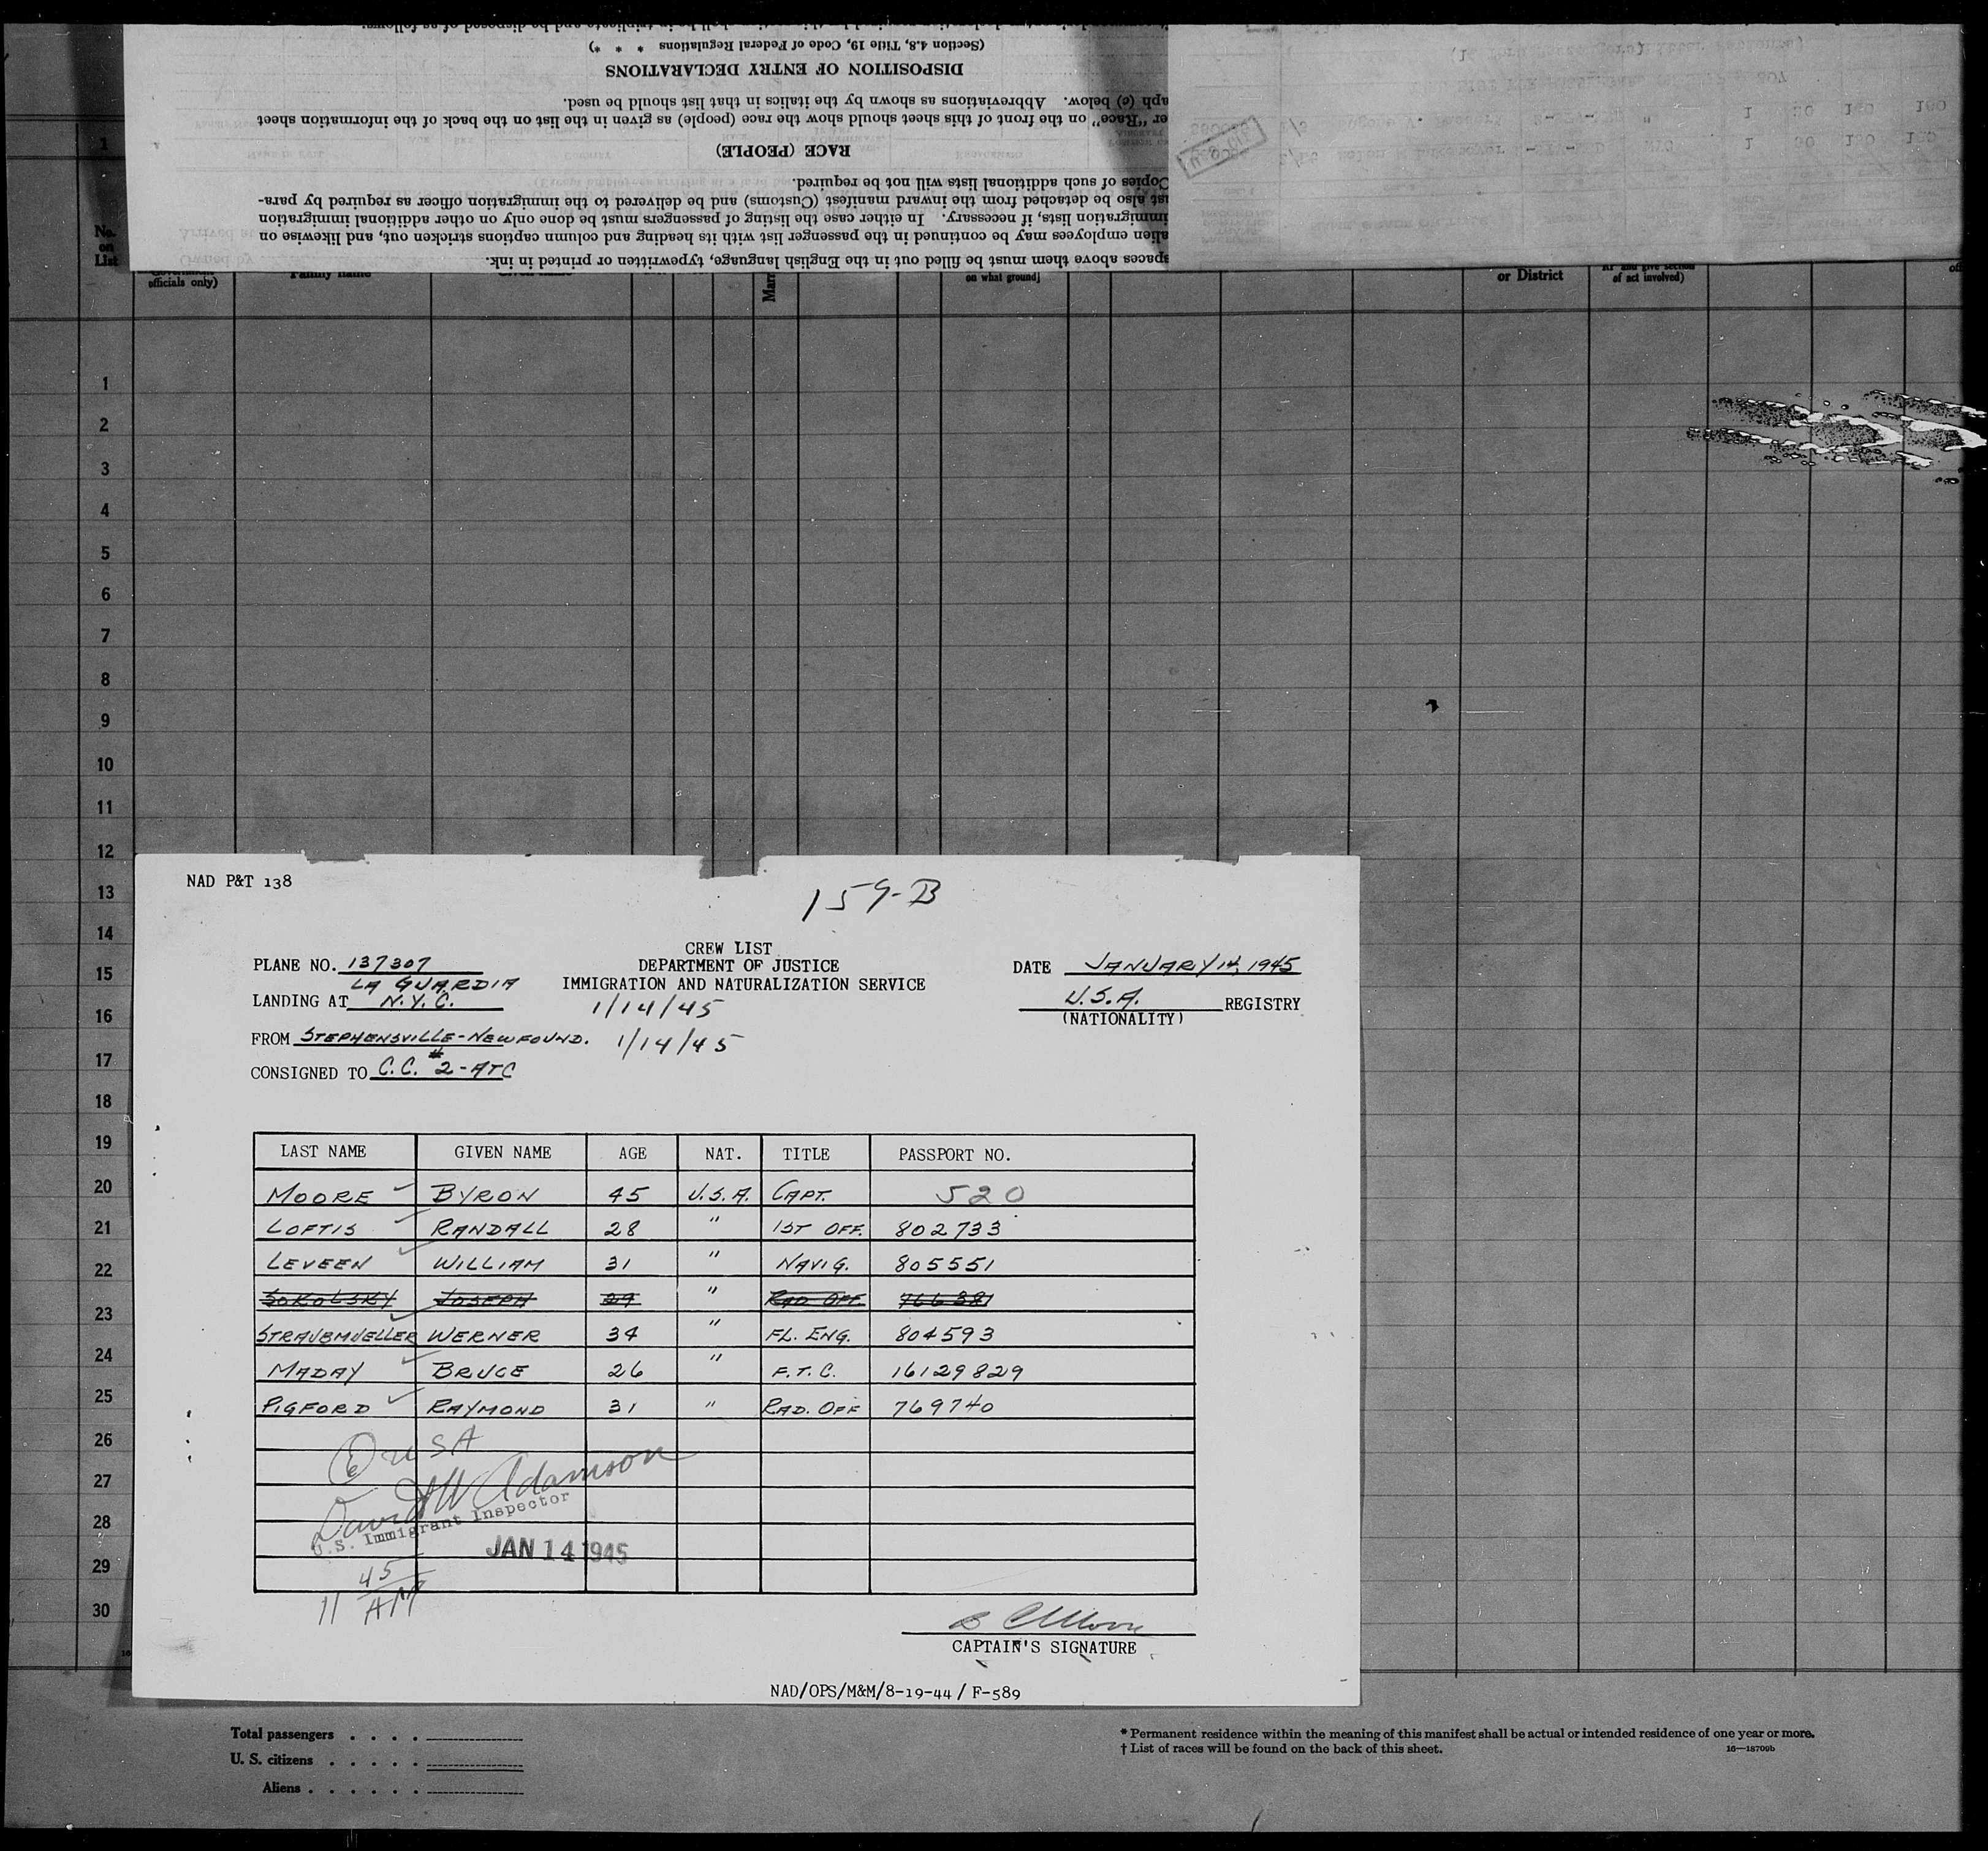 (Section 4.8, Title 19, Code of Federal Regulations * * *)
DISPOSITION OF ENTRY DECLARATIONS
aph (c) below. Abbreviations as shown by the italics in that list should be used.
er "Race" on the front of this sheet should show the race (people) as given in the list on the back of the information sheet
RACE (PEOPLE)
Copies of such additional lists will not be required.
ust also be detached from the inward manifest (Customs) and be delivered to the immigration officer as required by para-
immigration lists, if necessary. In either case the listing of passengers must be done only on other additional immigration
alien employees may be continued in the passenger list with its heading and column captions stricken out, and likewise on
spaces above them must be filled out in the English language, typewritten or printed in ink.
1
No. on List
officials only)
Family name
on what ground]
or District
of act involved)
1
2
3
4
5
6
7
8
9
10
11
12
13
14
15
16
17
18
19
20
21
22
23
24
25
26
27
28
29
30
NAD P&T 138
159-B
CREW LIST
PLANE NO. 137307 DEPARTMENT OF JUSTICE DATE JANUARY 14, 1945
LA GUARDIA IMMIGRATION AND NATURALIZATION SERVICE
LANDING AT N.Y.C. 1/14/45 U.S.A. REGISTRY
(NATIONALITY)
FROM STEPHENSVILLE-NEWFOUND. 1/14/45
CONSIGNED TO C.C. #2-ATC
LAST NAME GIVEN NAME AGE NAT. TITLE PASSPORT NO.
MOORE ✓ BYRON 45 U.S.A. CAPT. 520
LOFTIS ✓ RANDALL 28 " 1ST OFF. 802733
LEVEEN ✓ WILLIAM 31 " NAVIG. 805551
SOKOLSKY JOSEPH 29 " RAD OFF. 76638
STRAUBMUELLER ✓ WERNER 34 " FL. ENG. 804593
MADAY ✓ BRUCE 26 " F.T.C. 16129829
PIGFORD ✓ RAYMOND 31 " RAD. OFF 769740
6 USA
David W Adamson
U.S. Immigrant Inspector
JAN 14 1945
11 45 AM
B C Moore
CAPTAIN'S SIGNATURE
NAD/OPS/M&M/8-19-44 / F-589
Total passengers . . . .
U. S. citizens . . . . .
Aliens . . . . . .
* Permanent residence within the meaning of this manifest shall be actual or intended residence of one year or more.
† List of races will be found on the back of this sheet. 16—18709b